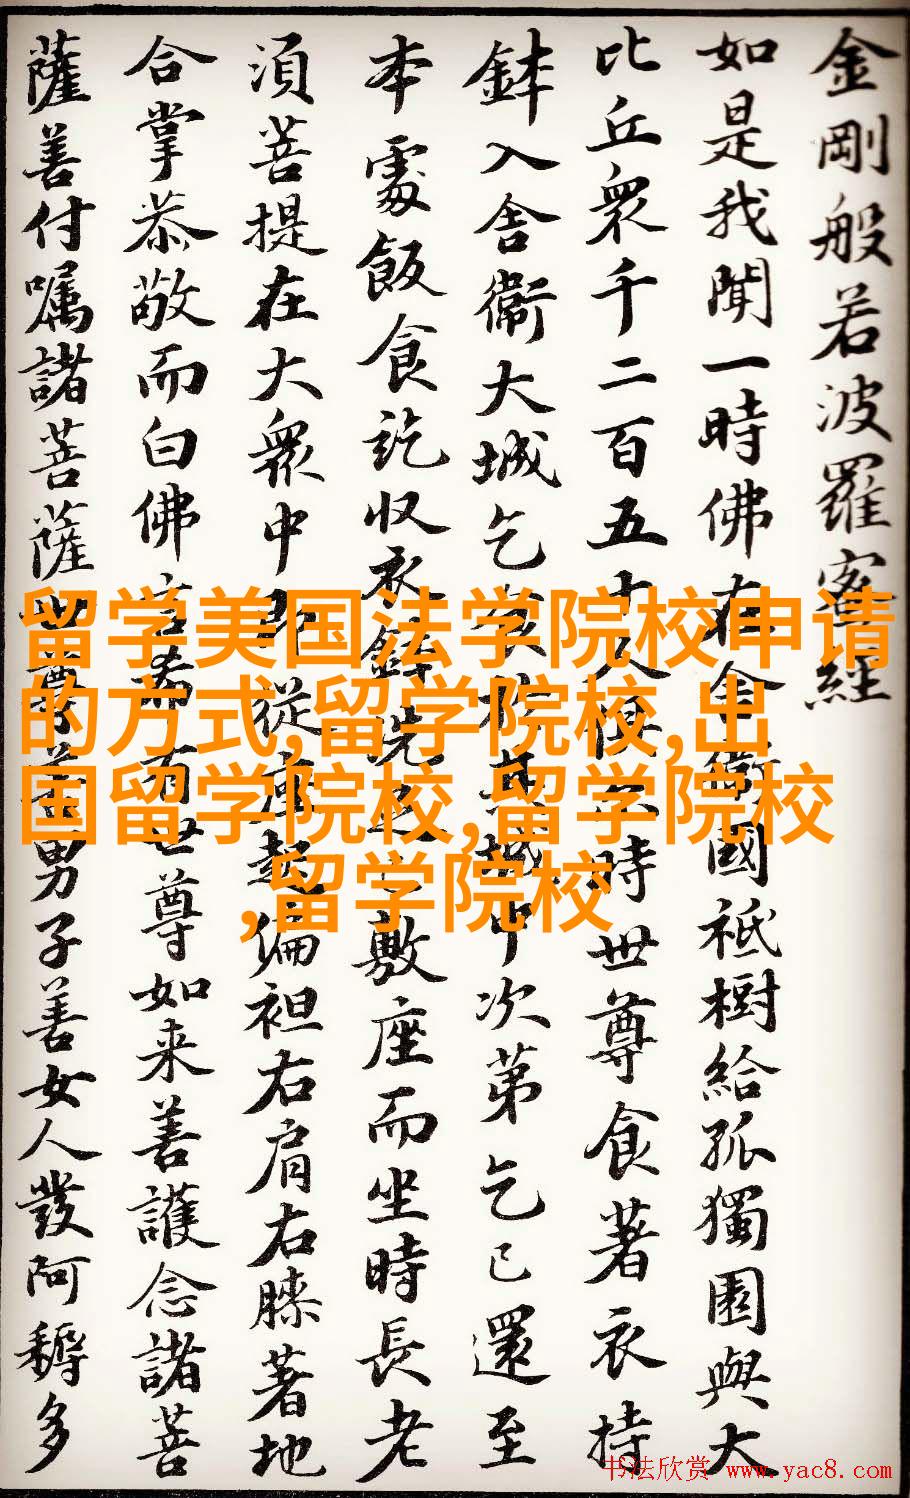 金剛般若波羅蜜經
如是我聞一時佛在舍衛國祇樹給孤獨園與大
比丘衆千二百五十人俱尒時世尊食著衣持
鉢入舍衛大城乞食於其城中次第乞已還至
本處飯食訖收衣鉢洗足已敷座而坐時長老
須菩提在大衆中即從座起偏袒右肩右膝著地
合掌恭敬而白佛言希有世尊如来善護念諸菩
薩善付嘱諸菩薩世尊善男子善女人發阿耨多
留学美国法学院校申请
的方式,留学院校,出
国留学院校,留学院校
,留学院校
书法欣赏 www.yac8.com